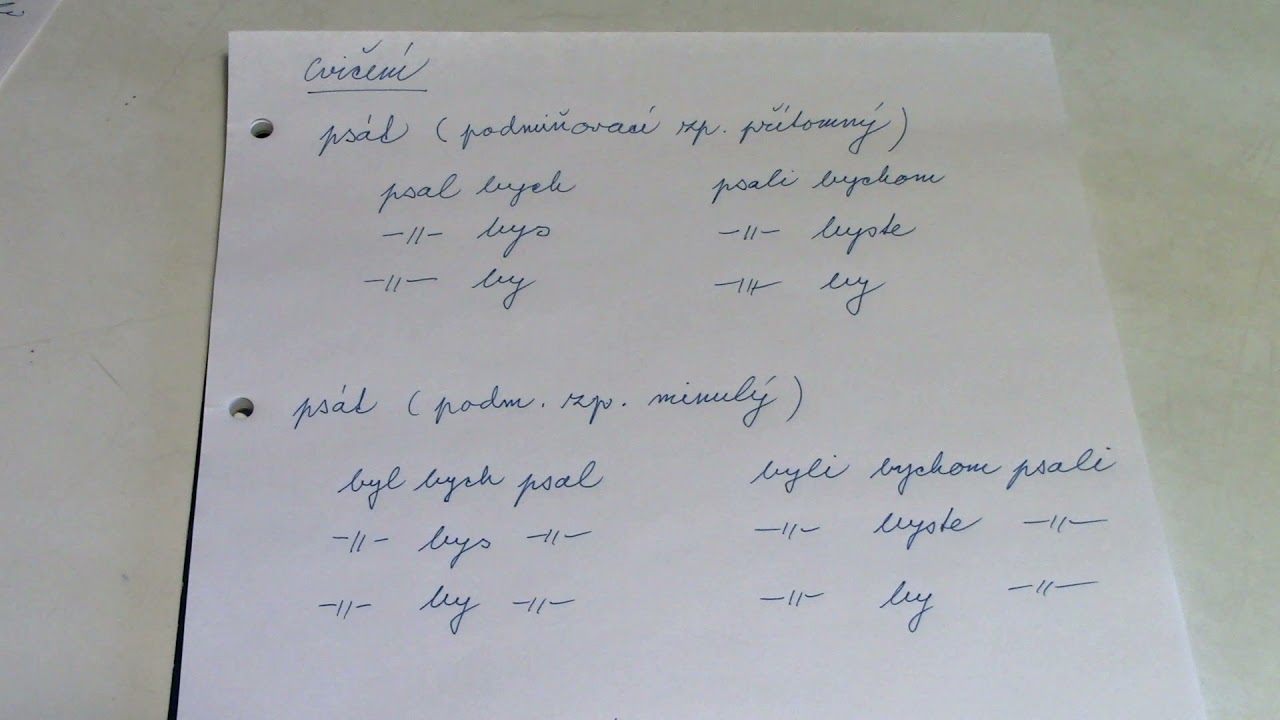 Cvičení
psát (podmiňovací zp. přítomný)
psal bych psali bychom
-11- bys -11- byste
-11- by -11- by
psát (podm. zp. minulý)
byl bych psal byli bychom psali
-11- bys -11- -11- byste -11-
-11- by -11- -11- by -11-